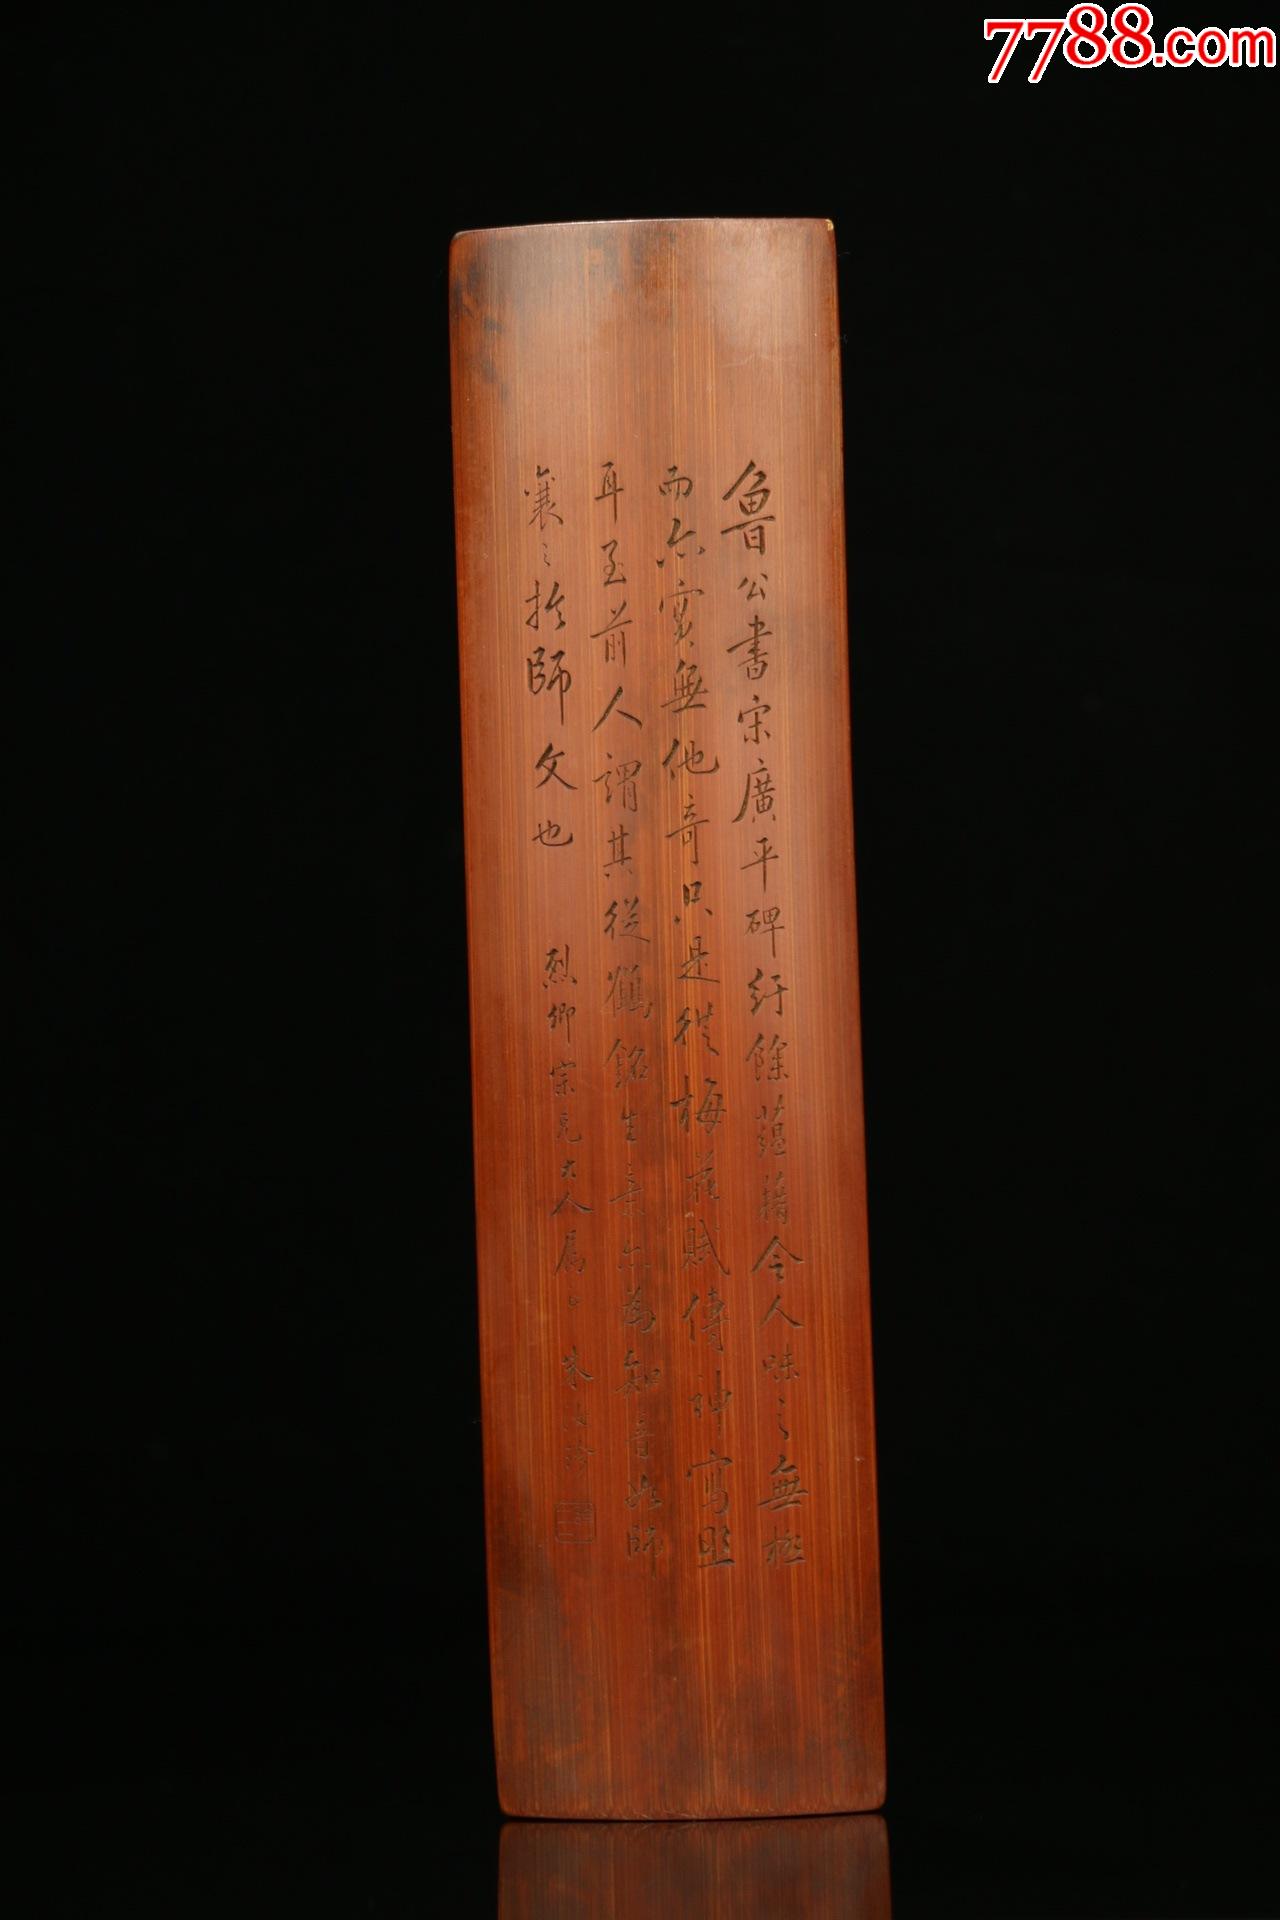 7788.com
魯公書宋廣平碑紆餘蘊藉令人味之無極
而亦實無他奇只是從梅花賦傳神寫照
耳至前人謂其從鶴銘生亲亦為知音如師
襄之於師文也
烈卿宗兄大人属 朱汝珍